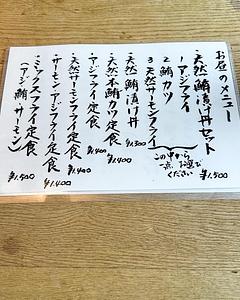 お昼のメニュー
・天然鯛漬け丼セット
1 アジフライ
2 鯛カツ
3 天然サーモンフライ
この中から
一点、お選び
ください
¥1,500
・天然鯛漬け丼
¥1,300
・天然本鯛カツ定食
¥1,400
・アジフライ定食
¥1,400
・天然サーモンフライ定食
¥1,400
・サーモンアジフライ定食
¥1,400
・ミックスフライ定食
(アジ・鯛・サーモン)
¥1,500